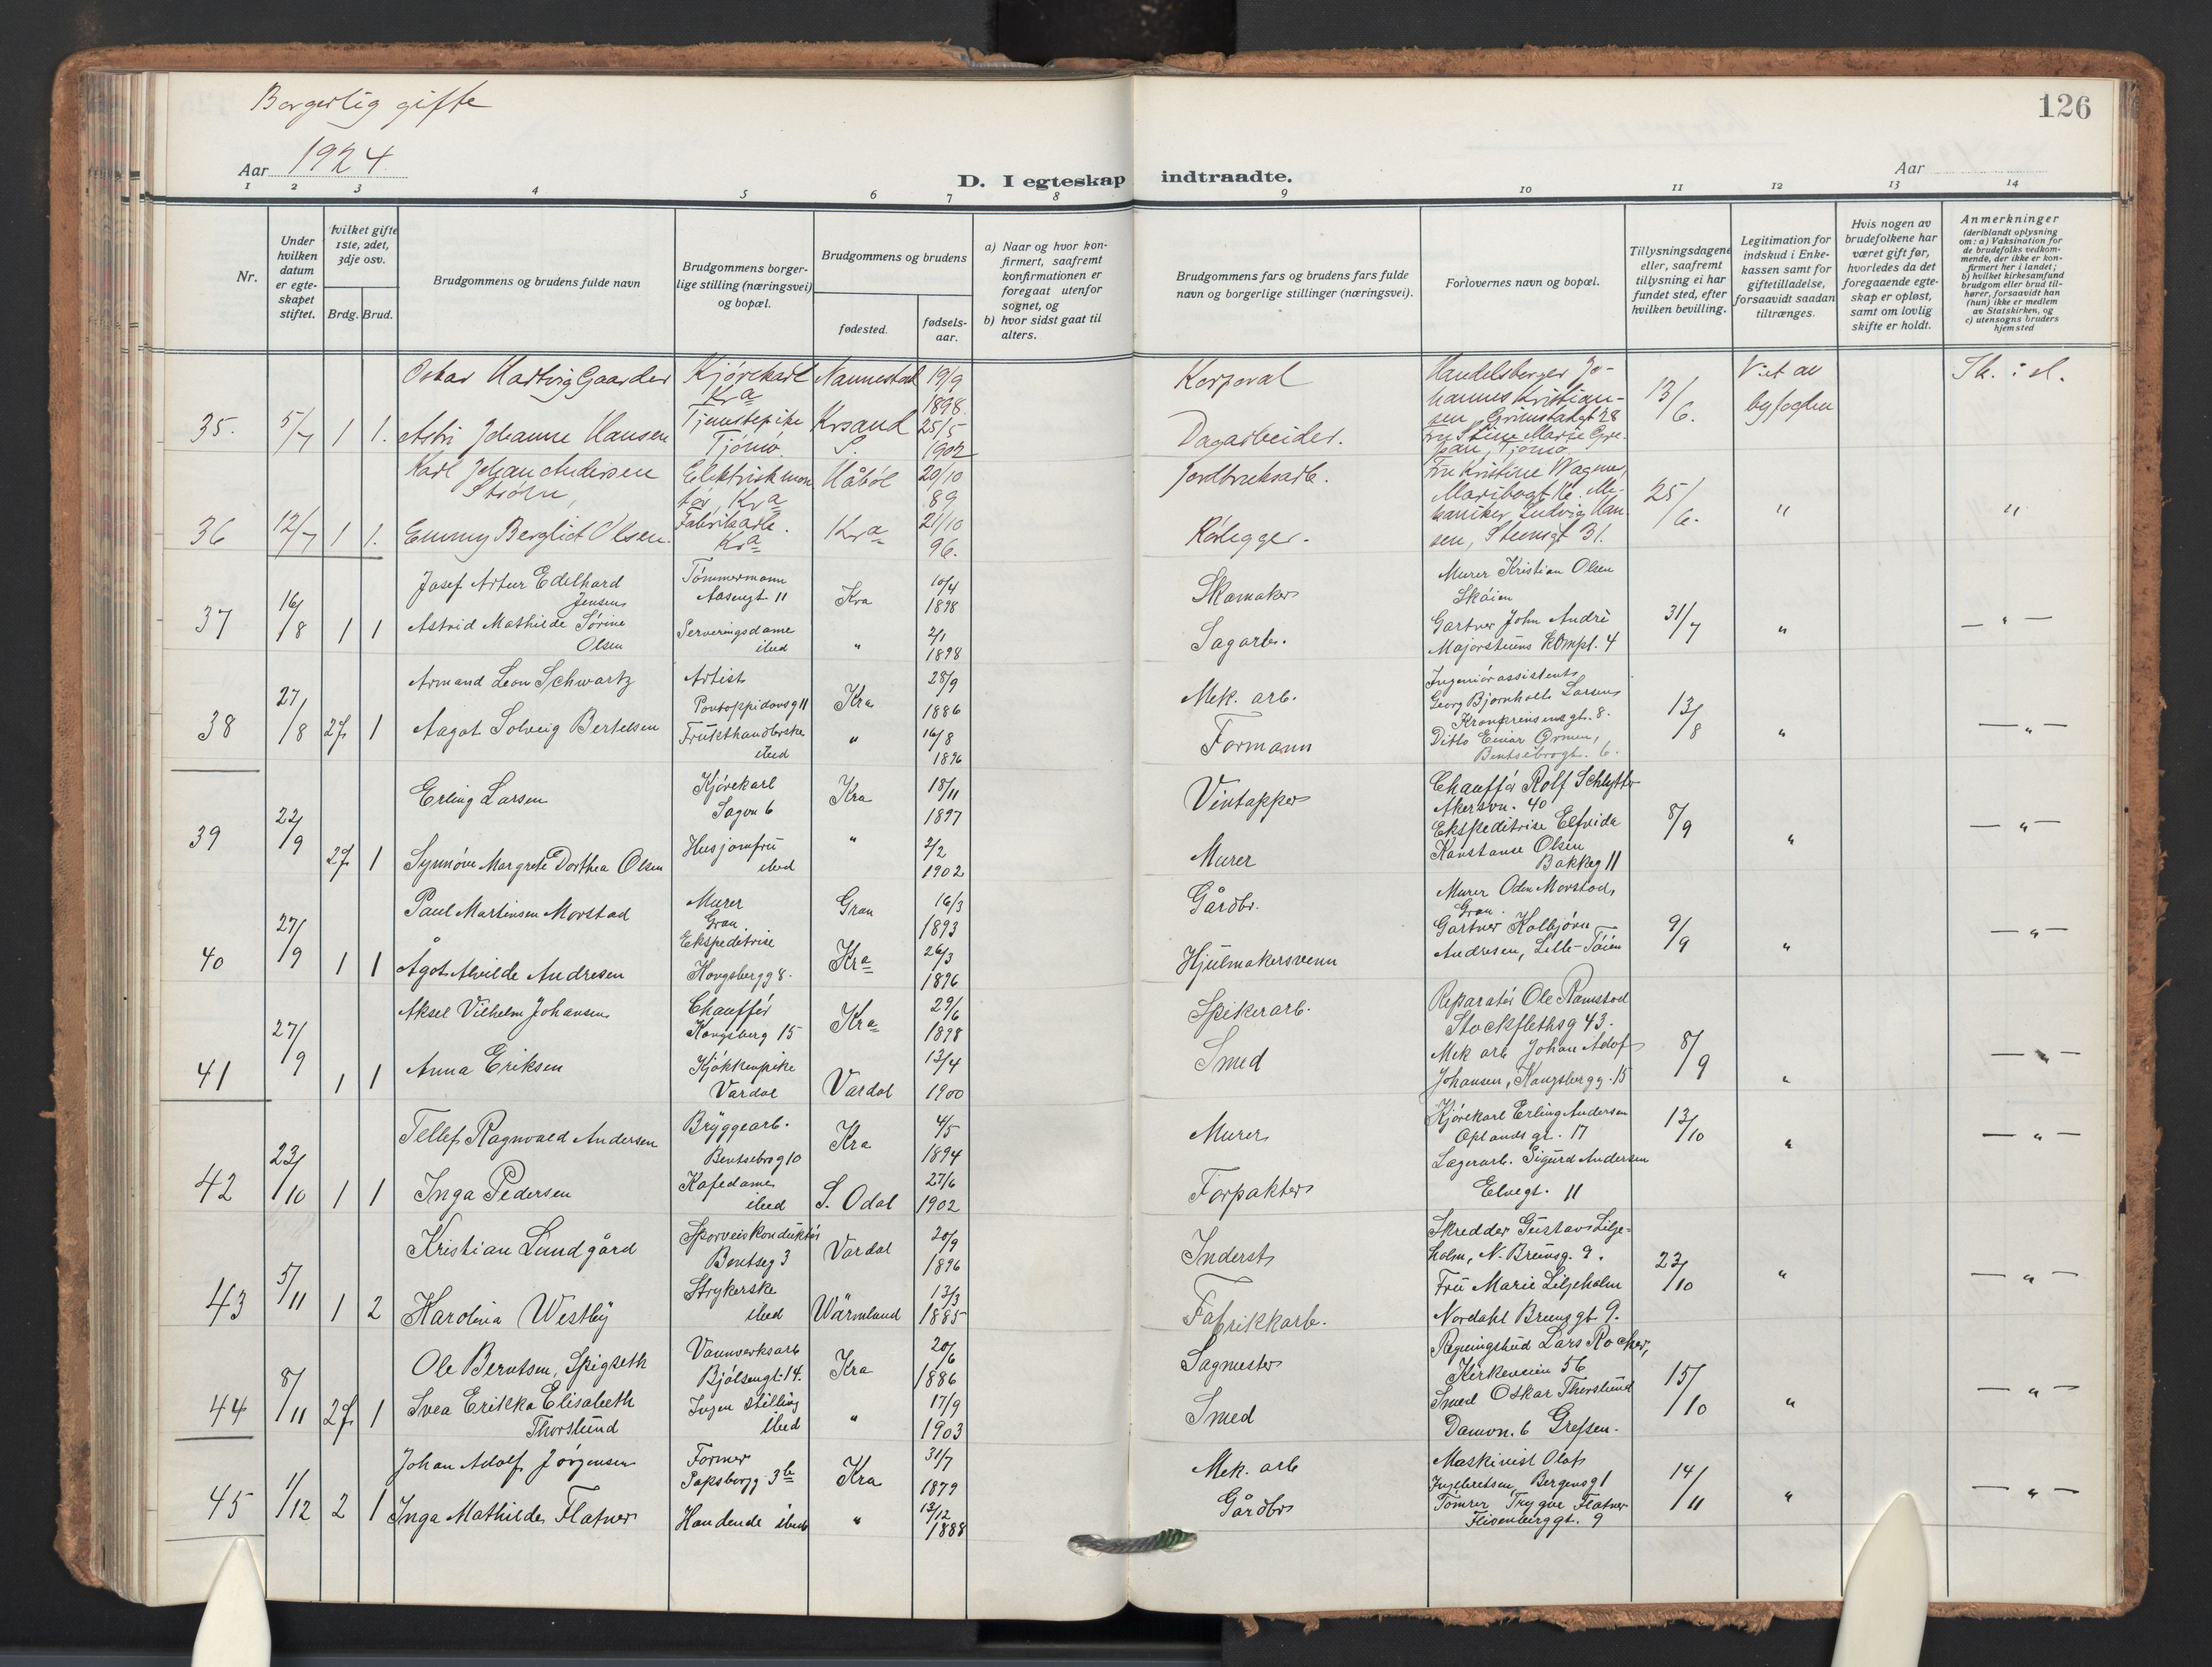 Borgerlig gifte
126
Aar 1924
Aar
D. I egteskap indtraadte.
1 2 3 4 5 6 7 8 9 10 11 12 13 14
Nr.
Under hvilken datum er egteskapet stiftet.
hvilket gifte 1ste, 2det, 3dje osv.
Brdg. Brud.
Brudgommens og brudens fulde navn
Brudgommens borgerlige stilling (næringsvei) og bopæl.
Brudgommens og brudens
fødested.
fødselsaar.
a) Naar og hvor konfirmert, saafremt konfirmationen er foregaat utenfor sognet, og
b) hvor sidst gaat til alters.
Brudgommens fars og brudens fars fulde navn og borgerlige stillinger (næringsvei).
Forlovernes navn og bopæl.
Tillysningsdagene eller, saafremt tillysning ei har fundet sted, efter hvilken bevilling.
Legitimation for indskud i Enkekassen samt for giftetilladelse, forsaavidt saadan tiltrænges.
Hvis nogen av brudefolkene har været gift før, hvorledes da det foregaaende egteskap er opløst, samt om lovlig skifte er holdt.
Anmerkninger (deriblandt oplysning om: a) Vaksination for de brudefolks vedkommende, der ikke er konfirmert her i landet; b) hvilket kirkesamfund brudgom eller brud tilhører, forsaavidt han (hun) ikke er medlem av Statskirken, og c) utensogns bruders hjemsted
Oskar Hartvig Gaarder Kjørekarl Kra Nannestad 19/9 1898. Korporal Handelsborger Johannes Kristiansen, Grimstadgt 28 13/6. Viet av byfogden
35. 5/7 1 1. Astri Johanne Hansen Tjenestepike Tjømø Krsand S. 25/5 1902 Dagarbeider. Fru Stine Marie Tjømø
Karl Johan Andersen Strøm, Elektriskmontør, Kra Håbøl 20/10 89 Jordbruksarb. Fru Kristine Wagner, Maribogt 16. Me-
36 12/7 1 1. Emmy Bergliot Olsen. Fabrikarb. Kra Kra 21/10 96. Rørlegger. kaniker Ludvig Hansen, Steensgt 31. 25/6. "
Josef Artur Edelhard Jensen Tømmermann Aasengt. 11 Kra 10/4 1898 Skomaker Murer Kristian Olsen Skøien
37 16/8 1 1 Astrid Mathilde Sørine Olsen Serveringsdame ibid " 2/1 1898 Sagarb. Gartner John André Majorstuens Kompl. 4 31/7 " — " —
Armand Leon Schwartz Artist Pontoppidansg 11 Kra 28/9 1886 Mek. arb. Ingeniørassistent Georg Bjørnholt Larsen Kronprinsensgt. 8.
38 27/8 2f. 1 Aagot Solveig Bertelsen Frukthandlerske ibid " 16/8 1896 Formann Ditto Einar Ormen, Bentsebrogt. 6. 13/8 " — " —
Erling Larsen Kjørekarl Sagvn 6 Kra 18/11 1897 Vintapper Chauffør Rolf Schlytter Akersvn. 40
39 22/9 2f 1 Synnøve Margrete Dorthea Olsen Husjomfru ibid " 2/2 1902 Murer Ekspeditrise Elfrida Konstanse Olsen Bakkeg 11 8/9 " — " —
Paul Martinsen Morstad Murer Gran Gran 16/3 1893 Gårdbr. Murer Oden Morstad, Gran.
40 27/9 1 1 Ågot Alvilde Andresen Ekspeditrise Kongsbergg 8. Kra 26/3 1896 Hjulmakersvenn Gartner Kolbjørn Andresen, Lille-Tøien 9/9 " — " —
Aksel Vilhelm Johansen Chauffør Kongsberg 15 Kra 29/6 1898 Spikerarb. Reparatør Ole Ramstad Stockflethsg 43.
41 27/9 1 1 Anna Eriksen Kjøkkenpike Vardal Vardal 13/4 1900 Smed Mek arb Johan Adolf Johansen, Kongsbergg. 15 8/9 " — " —
Tellef Ragnvald Andersen Bryggearb. Bentsebrog 10 Kra 4/5 1894 Murer Kjørekarl Erling Andersen Oplandsgt. 17 13/10 " — " —
42 23/10 1 1 Inga Pedersen Kafedame ibid S. Odal 27/6 1902 Forpakter Lagerarb. Sigurd Andersen Elvegt. 11
Kristian Lundgård Sporveiskonduktør Bentseg 3 Vardal 20/9 1896 Inderst Skredder Gustav Liljeholm, N. Brunsg. 9.
43 5/11 1 2 Karolina Westby Strykerske ibid Wärmland 13/3 1885 Fabrikkarb. Fru Marie Liljeholm Nordahl Brunsgt 9. 22/10 " — " —
Ole Berntsen Spigseth Vannverksarb Bjølsengt. 14. Kra 20/6 1886 Sagmester Regningsbud Lars Rocker, Kirkeveien 56
44 8/11 2f. 1 Svea Erikka Elisabeth Thorslund Ingen stilling ibid " 17/9 1903 Smed Smed Oskar Thorslund Damvn. 6 Grefsen. 15/10 " — " —
Johan Adolf Jørgensen Former Sarpsborgg 3b Kra 31/7 1879 Mek. arb Maskinist Olof Ingebretsen, Bergensg 1
45 1/12 2 1 Inga Mathilde Flatner Handlende ibid " 13/12 1888 Gårdbr Tømrer Trygve Flatner 9 14/11 " — " —